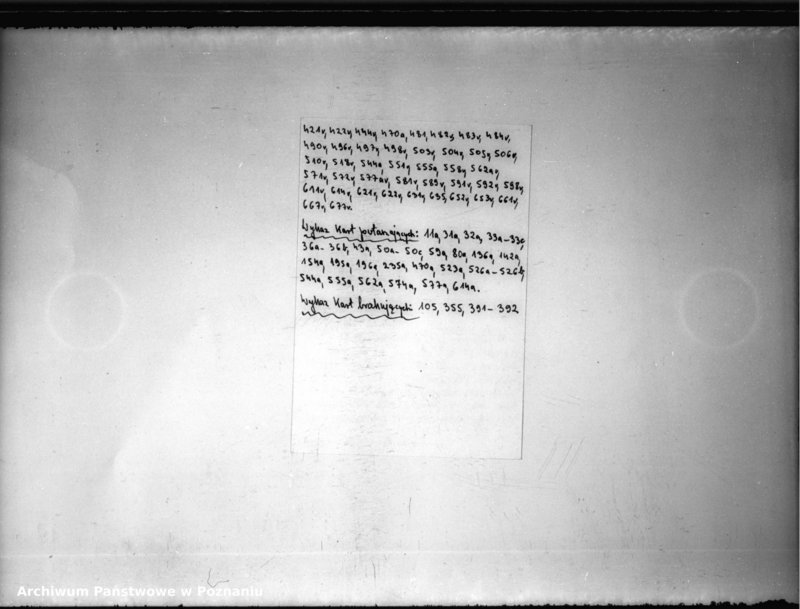 421v, 422v, 444v, 470a, 481, 482v, 483v, 484v,
490v, 496v, 497v, 498v, 503v, 504v, 505v, 506v,
510v, 518v, 544a, 551v, 555a, 558v, 562av,
571v, 572v, 577av, 581v, 589v, 591v, 592v, 598v,
611v, 614v, 621v, 622v, 631v, 635, 652v, 653v, 661v,
667v, 677v.
Wykaz kart powtarzających: 11a, 31a, 32a, 33a-33c,
36a-36b, 43a, 50a-50c, 59a, 80a, 136a, 142a,
154a, 195a, 196a, 235a, 470a, 523a, 526a-526b,
544a, 555a, 562a, 574a, 577a, 614a.
Wykaz kart brakujących: 105, 355, 391-392
Archiwum Państwowe w Poznaniu